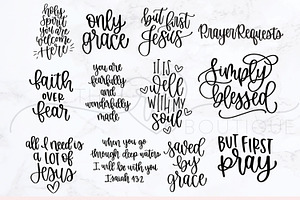 holy
spirit
you are
welcome
Here
only
grace
but first
Jesus
Prayer Requests
faith
over
fear
you are
fearfully
and
wonderfully
made
it is
well
with my
soul
simply
blessed
all I need is
a lot of
Jesus
when you go
through deep waters
I will be with you
Isaiah 43:2
saved
by
grace
BUT FIRST
pray
BOUTIQUE